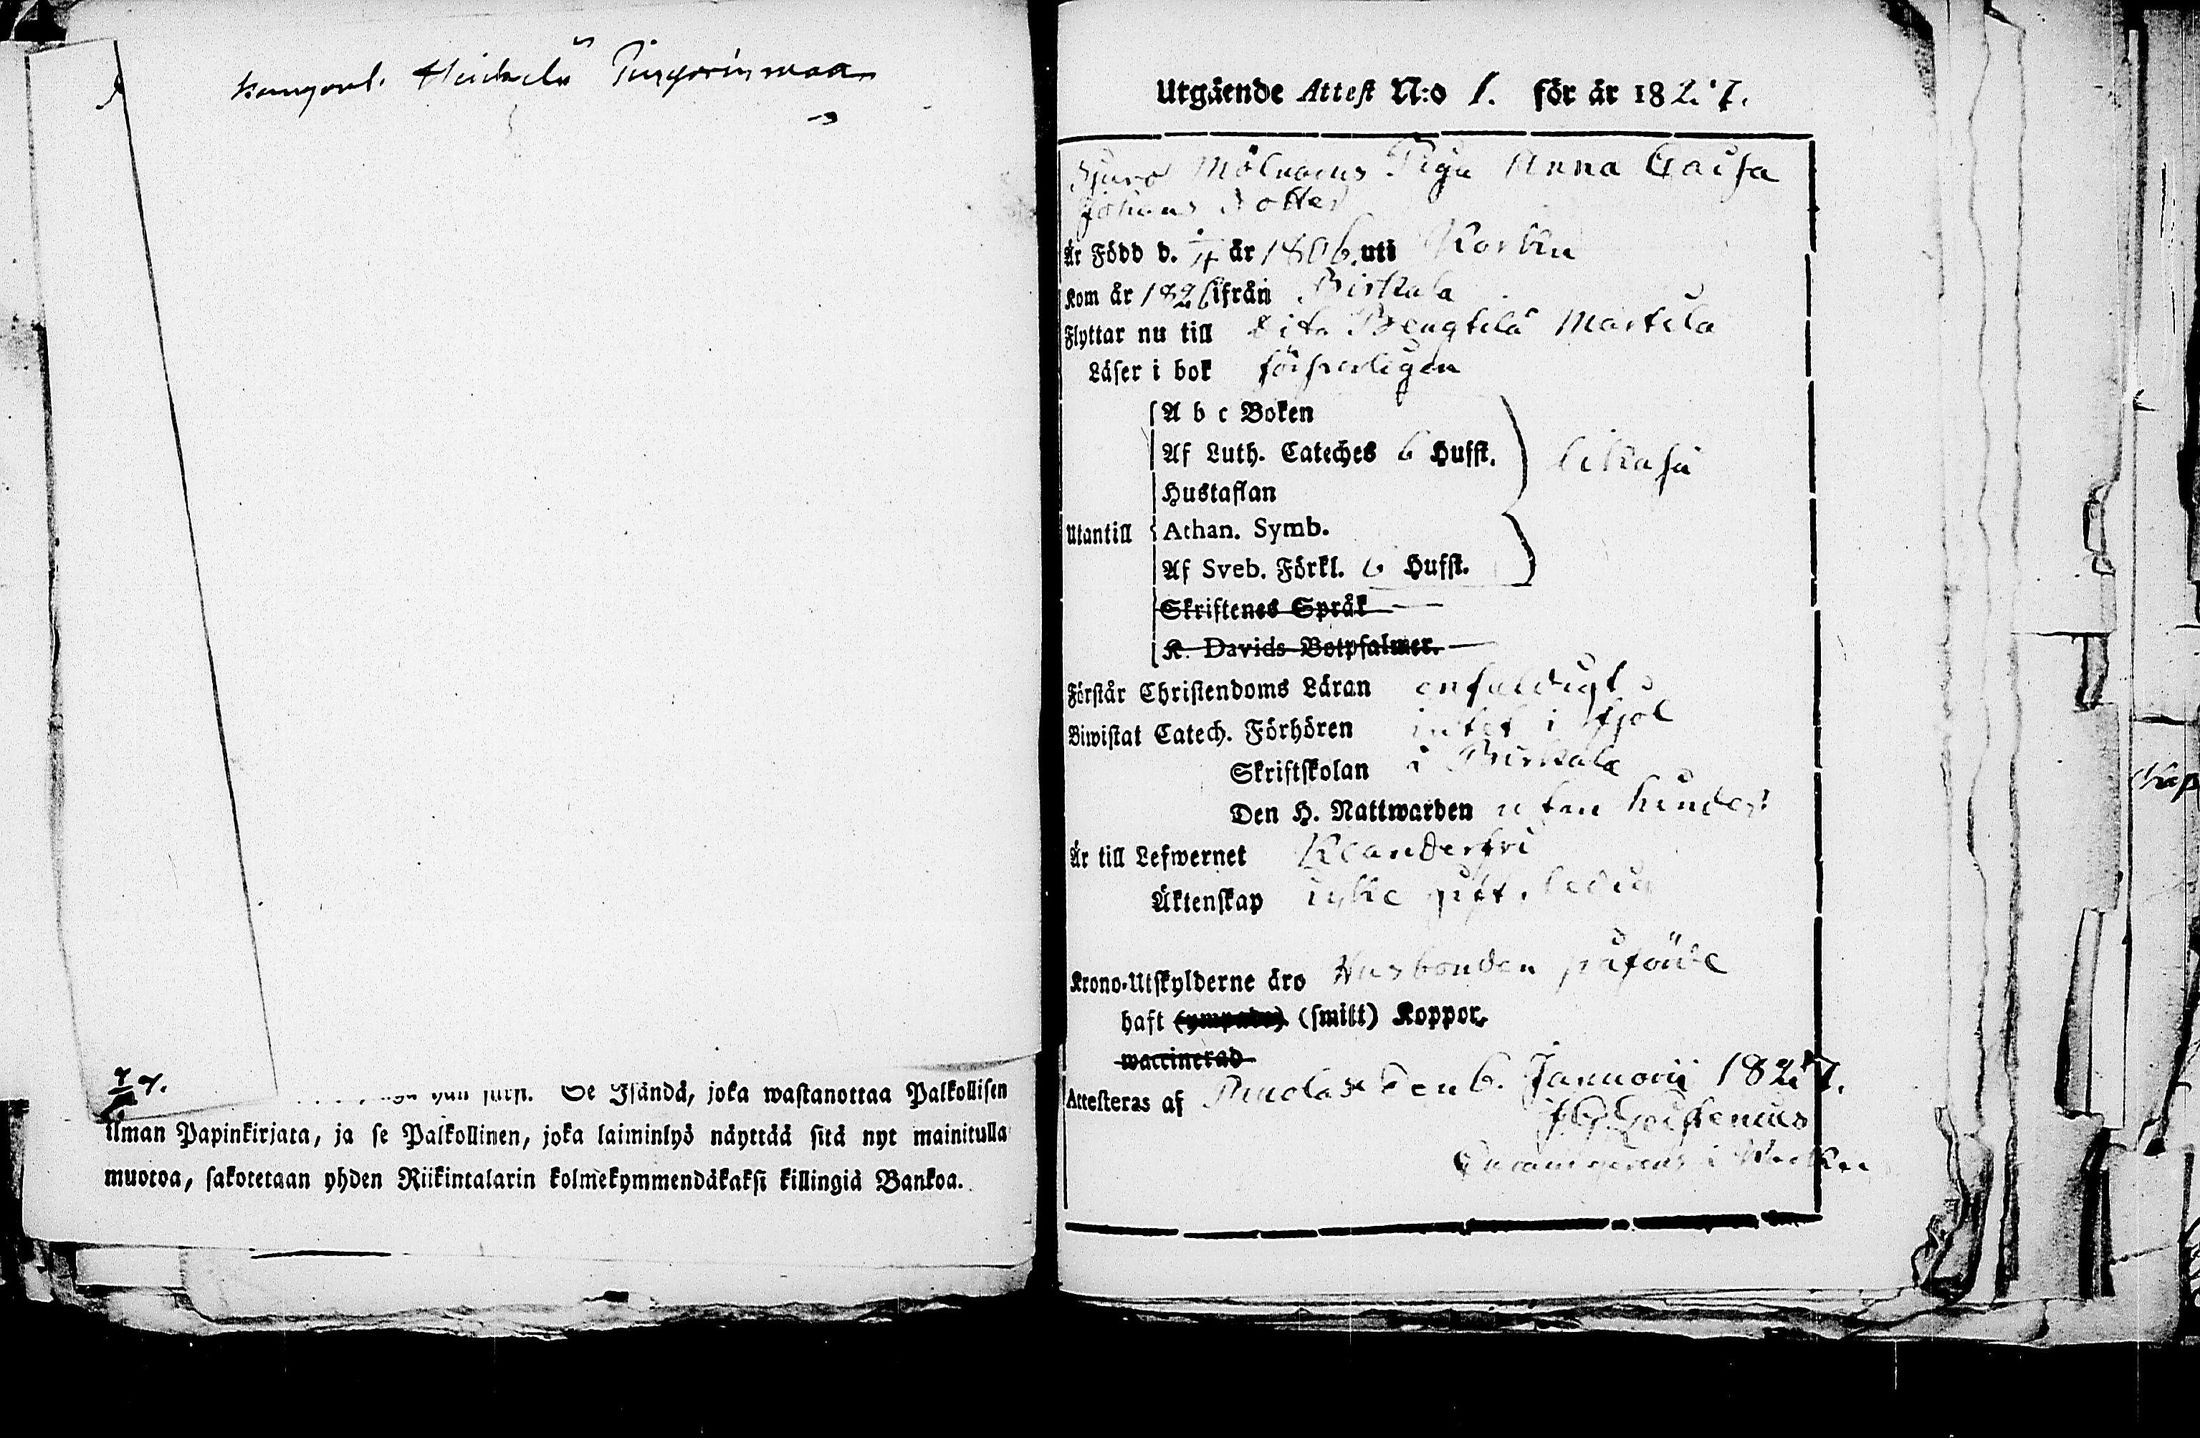 Kangasal. Heickilä
Se Isändä, joka wastanottaa Palkollisen
ilman Papinkirjata, ja se Palkollinen, joka laiminlyö näyttää sitä nyt mainitulla
muotoa, sakotetaan yhden Riikintalarin kolmekymmendäkaksi killingiä Bankoa.
Utgående Attest N:o 1. för år 1827.
Mölnarens Piga Anna Caisa
Johans dotter
Är Född d. år 1806 uti Korku
Kom år 1826 ifrån Birkala
Flyttar nu till Bengtilä Martila
Läser i bok försvarligen
A b c Boken
Af Luth. Cateches 6 Hufst.
likaså
Hustaflan
Utantill Athan. Symb.
Af Sveb. Förkl. 6 Hufst.
Skriftenes Språk
K. Davids Botpsalmer.
Förstår Christendoms Läran enfaldigt
Biwistat Catech. Förhören intet i fjol
Skriftskolan i Birkala
Den H. Nattwarden utan hinder
Är till Lefwernet Klanderfri
Äktenskap icke gift, ledig
Krono-Utskylderne äro Husbonden påförde
haft (ympade) (smitt) Koppor,
waccinerad
Attesteras af den 6. Januarii 1827.